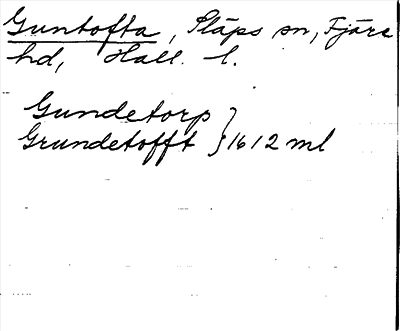 Guntofta, Släps sn, Fjäre
hd, Hall. l.
Gundetorp
Grundetofft } 1612 ml